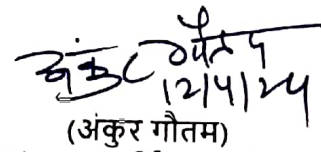 अंकुर गौतम
12/4/24
(अंकुर गौतम)